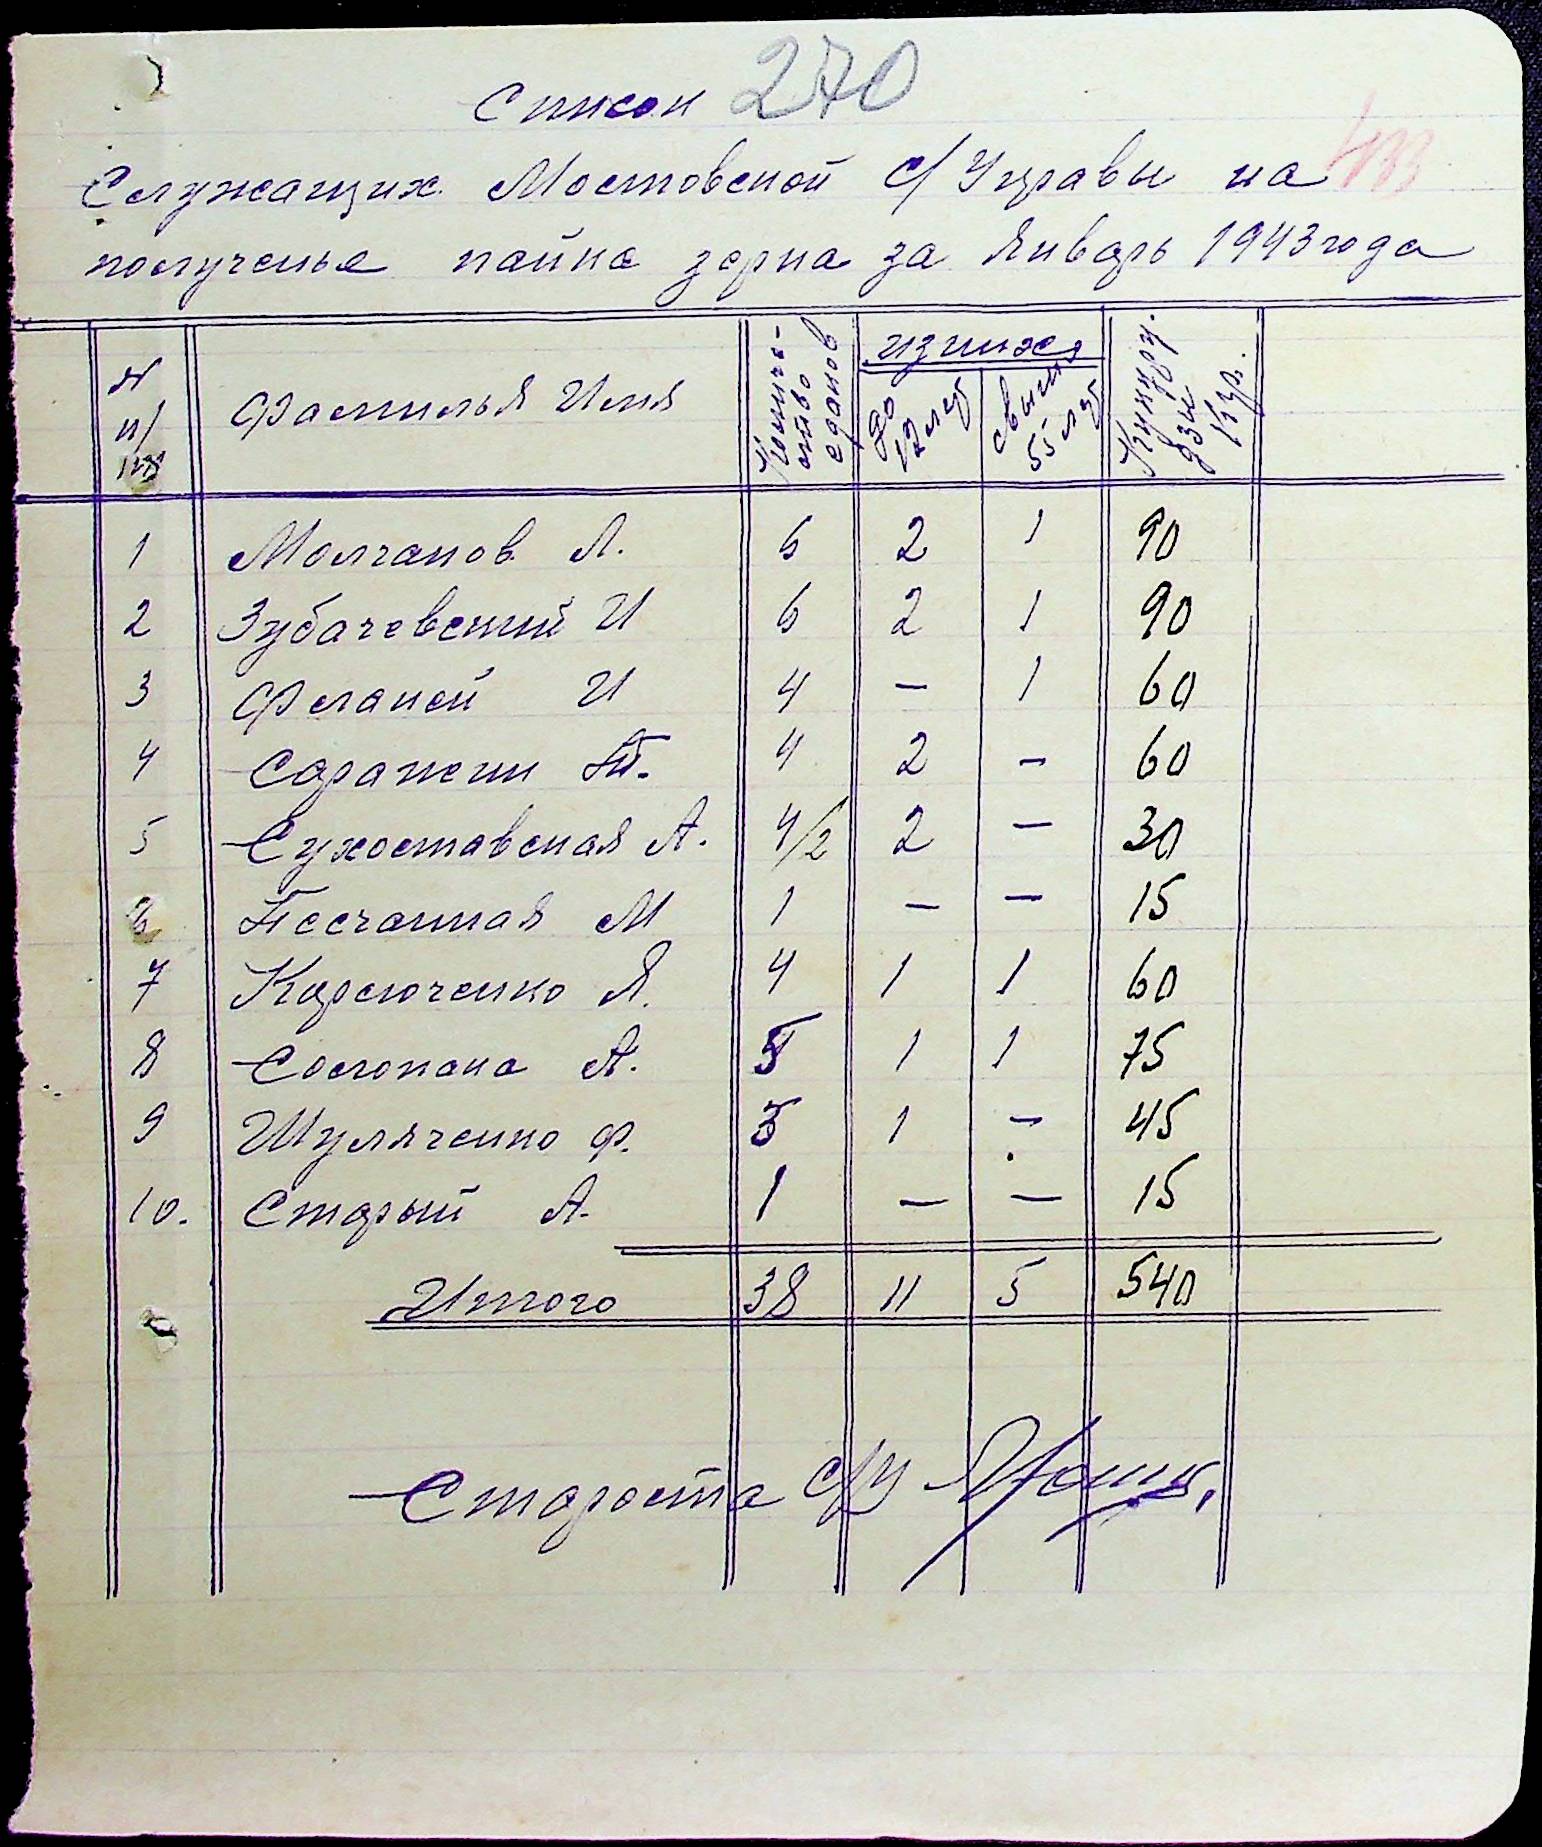 Список 270
Служащих Мостовской с/Управы на
полученье пайка зерна за Январь 1943 года
№ п/п Фамилья Имя Количество едоков из них до 12 лет свыше 55 лет Кукурузы 15 кгр.
1 Молчанов Л. 6 2 1 90
2 Зубачевский И 6 2 1 90
3 Фланей И 4 — 1 60
4 Саражени П. 4 2 — 60
5 Сухоставская А. 4/2 2 — 30
6 Песчанная М 1 — — 15
7 Карлюченко Я. 4 1 1 60
8 Солопана А. 5 1 1 75
9 Шуляченко Ф. 3 1 — 45
10. Старый А. 1 — — 15
Итого 38 11 5 540
Староста с/у